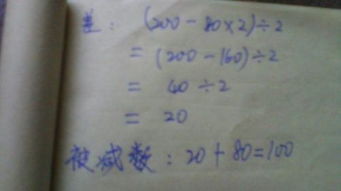 差：(200-80×2)÷2
=(200-160)÷2
= 40÷2
= 20
被减数：20+80=100